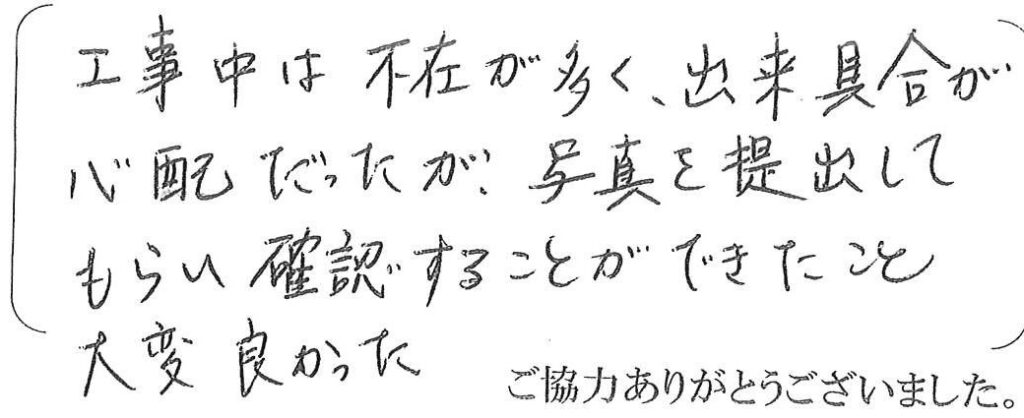 工事中は不在が多く、出来具合が
心配だったが、写真を提出して
もらい確認することができたこと
大変良かった
ご協力ありがとうございました。